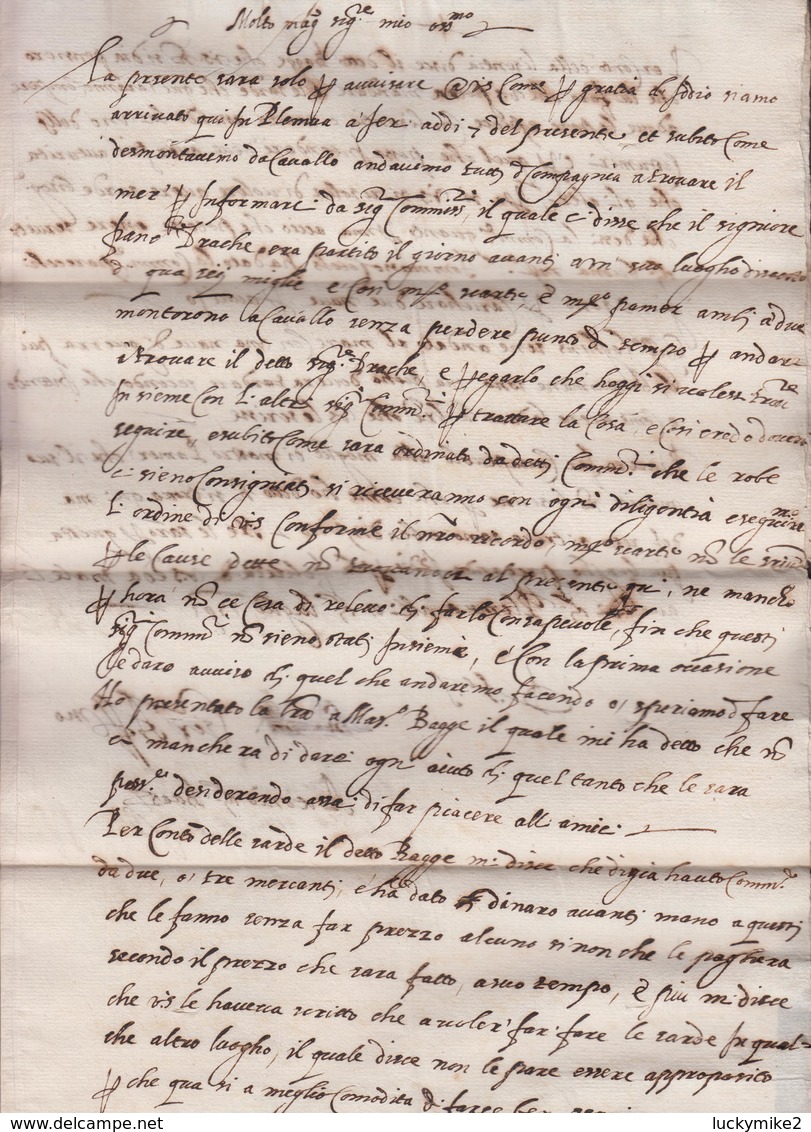 Molto mag.co sig.re mio oss.mo
La presente sara solo p avvisare VS Come p gratia di Iddio siamo
arrivato qui In Plemua a ier addi 7 del presente, et subito Come
desmontavimo da Cavallo andavimo tutti d Compagnia a trovare il
mer p Informare da sig. Commiss. il quale ci disse che il signiore
fran.co Drache era partito il giorno avanti a un suo luogho discosto
d qua sei miglie e Con
montorono a Cavallo senza perdere punto d tempo p andare
a trovare il detto sig.re Drache, e pregarlo che hoggi si volessi
Insieme Con l altri sig. Comm. p trattare la Cosa, e Cosi credo dovera
seguire, e subito Come sara ordinato da detti Comm. che le robe
ci sieno Consigniati si riceveranno con ogni diligentia e seguire
l ordine di VS Conforme il nro ricordo,
p le Cause dette no al presente qui, ne manco
p hora no ce Cosa di relevo di farlo Consapevole, fin che questi
sig. Comm. no sieno stati Insieme, e Con la prima occasione
Le daro avviso di quel che andaremo facendo o, speriamo d fare
Ho presentato la lra a Mas.o Bagge il quale mi ha detto che no
ci manchera di dare ogni aiuto di quel tanto che le sara
poss.le desiderando assai di far piacere all amici
Per Conto delle sarde il detto Bagge mi dice che di gia hauto Comm.e
da due, o, tre mercanti, e ha dato di dinaro avanti mano a questi
che le fanno senza far prezzo alcuno si non che le paghera
secondo il prezzo che sara fatto, a suo tempo, e piu mi dice
che VS le haveva scritto che a voler far fare le sarde In qual=
che altro luogho, il quale dice non le pare essere approposito
p che qua si a meglio Comodita d
luckymike2